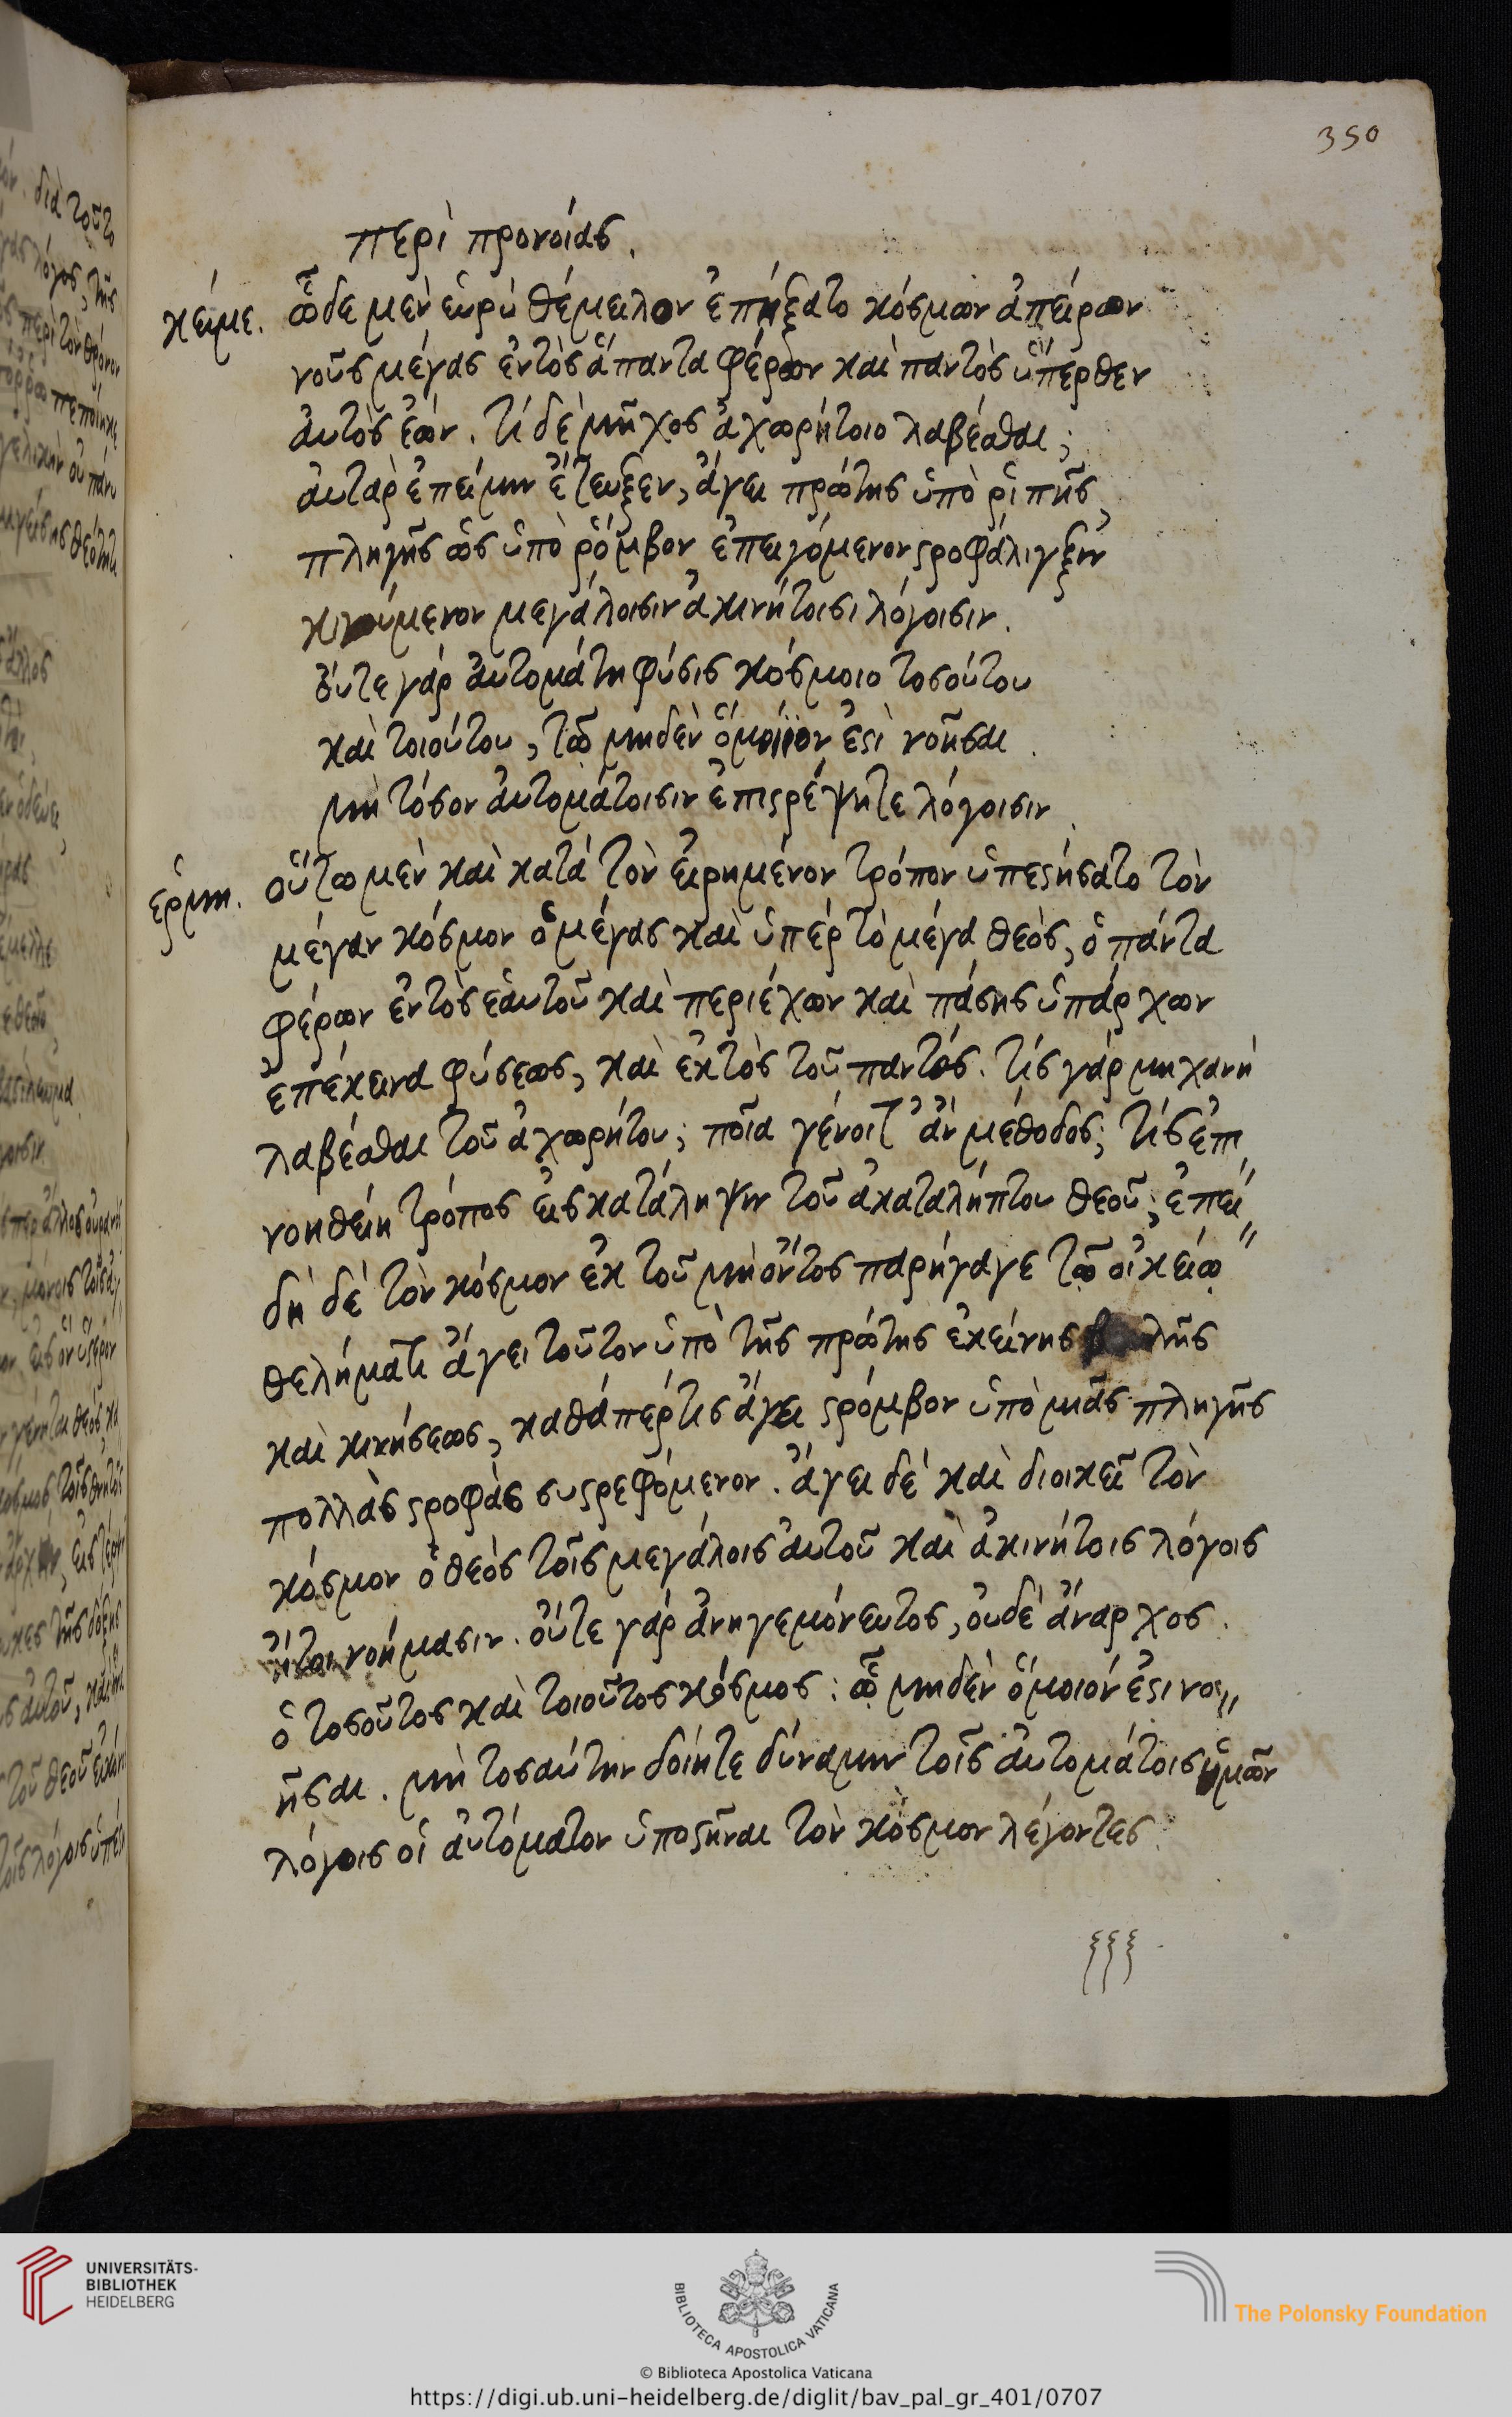 350
περὶ προνοίας.
κείμε. ὧδε μὲν εὐρὺ θέμειλον ἐπήξατο κόσμων ἀπείρων
νοῦς μέγας ἐντὸς ἅπαντα φέρων καὶ παντὸς ὕπερθεν
ἀυτὸς ἐών. τί δὲ μῆχος ἀχωρήτοιο λαβέσθαι;
ἀυτὰρ ἐπεί μιν ἔτευξεν, ἄγει πρώτης ὑπὸ ῥιπῆς
πληγῆς ὡς ὑπὸ ῥόμβον ἐπειγόμενον ϛροφάλιγξιν
κινούμενον μεγάλοισιν ἀκινήτοισι λόγοισιν.
ὄυτε γὰρ ἀυτομάτη φύσις κόσμοιο τοσούτου
καὶ τοιούτου, τῶ μηδὲν ὁμοίϊον ἐϛὶ νοῆσαι.
μὴ τόσον ἀυτομάτοισιν ἐπιϛρέψητε λόγοισιν.
ἑρμη. οὕτω μὲν καὶ κατὰ τὸν ἐιρημένον τρόπον ὑπεϛήσατο τὸν
μέγαν κόσμον ὁ μέγας καὶ ὑπὲρ τὸ μέγα θεὸς, ὁ πάντα
φέρων ἐντὸς ἑαυτοῦ καὶ περιέχων καὶ πάσης ὑπάρχων
ἐπέκεινα φύσεως, καὶ ἐκτὸς τοῦ παντός. τίς γὰρ μηχανὴ
λαβέσθαι τοῦ ἀχωρήτου; ποῖα γένοιτ' ἂν μέθοδος; τίς ἐπι
νοηθείη τρόπος ἐις κατάληψιν τοῦ ἀκαταλήπτου θεοῦ; ἐπει"
δὴ δὲ τὸν κόσμον ἐκ τοῦ μὴ ὄντος παρήγαγε τῷ οἰκείῳ"
θελήματι ἄγει τοῦτον ὑπὸ τῆς πρώτης ἐκείνης
καὶ κινήσεως, καθάπερ τις ἄγει ϛρόμβον ὑπὸ μιᾶς πληγῆς
πολλὰς ϛροφὰς συϛρεφόμενον. ἄγει δὲ καὶ διοικεῖ τὸν
κόσμον ὁ θεὸς τοῖς μεγάλοις ἀυτοῦ καὶ ἀκινήτοις λόγοις
ἤτοι νοήμασιν. οὔτε γὰρ ἀνηγεμόνευτος, ὀυδὲ ἄναρχος.
ὁ τοσοῦτος καὶ τοιοῦτος κόσμος: ᾧ μηδὲν ὅμοιόν ἐϛι νο"
ῆσαι. μὴ τοσαύτην δοίητε δύναμιν τοῖς ἀυτομάτοις ὑμῶν
λόγοις οἱ ἀυτόματον ὑποϛῆναι τὸν κόσμον λέγοντες.
UNIVERSITÄTS-
BIBLIOTHEK
HEIDELBERG
BIBLIOTECA APOSTOLICA VATICANA
The Polonsky Foundation
© Biblioteca Apostolica Vaticana
https://digi.ub.uni-heidelberg.de/diglit/bav_pal_gr_401/0707